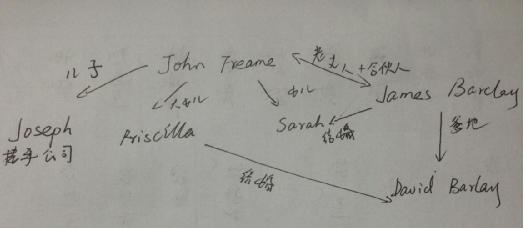 儿子
John Freame
老丈人+合伙人
大女儿
女儿
James Barclay
Joseph
Priscilla
Sarah
结婚
爹地
接手公司
结婚
David Barlay